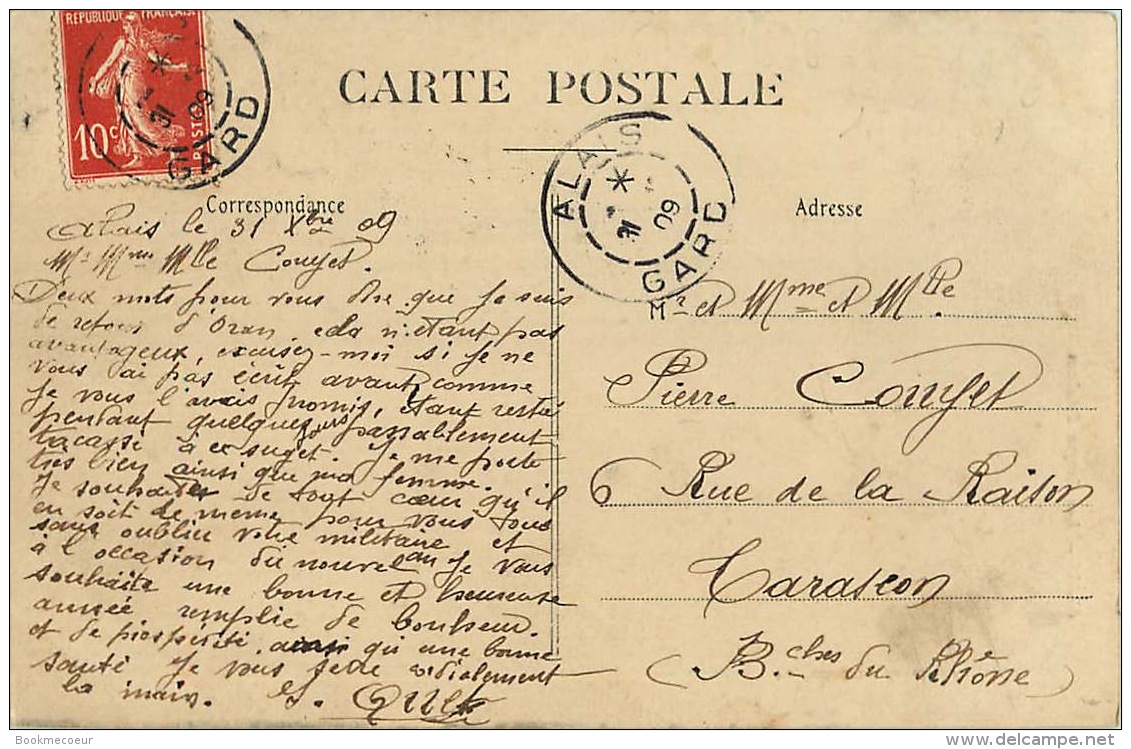 REPUBLIQUE FRANÇAISE
10c
POSTES
GARD
31
09
CARTE POSTALE
ALAIS
31
09
GARD
Correspondance
Adresse
Alais le 31 Xbre 09
Mr Mme Mlle Couyet.
Deux mots pour vous dire que je suis
de retour d'Oran, cela n'étant pas
avantageux, excusez-moi si je ne
vous ai pas écrit avant comme
je vous l'avais promis, étant resté
pendant quelques jours passablement
tacassé à ce suget. Je me porte
très bien ainsi que ma femme.
Je souhaite de tout cœur qu'il
en soit de même pour vous tous
sans oublier votre militaire et
à l'occasion du nouvel an je vous
souhaite une bonne et heureuse
année remplie de bonheur
et de prospérité ainsi qu'une bonne
santé Je vous serre cordialement
la main.
Mr et Mme et Mlle
Pierre Couyet
6 Rue de la Raison
Tarascon
(Bches du Rhône)
Bookmecoeur
delcampe.net